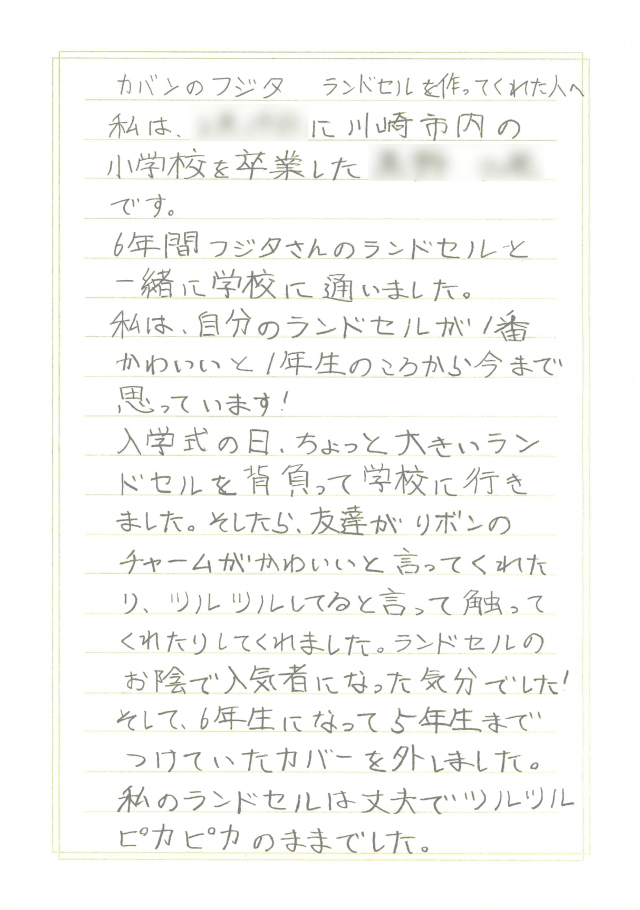 カバンのフジタ　ランドセルを作ってくれた人へ
私は、に川崎市内の
小学校を卒業した
です。
6年間フジタさんのランドセルと
一緒に学校に通いました。
私は、自分のランドセルが1番
かわいいと1年生のころから今まで
思っています!
入学式の日、ちょっと大きいラン
ドセルを背負って学校に行き
ました。そしたら、友達がリボンの
チャームがかわいいと言ってくれた
り、ツルツルしてると言って触って
くれたりしてくれました。ランドセルの
お陰で入気者になった気分でした!
そして、6年生になって5年生まで
つけていたカバーを外しました。
私のランドセルは丈夫でツルツル
ピカピカのままでした。